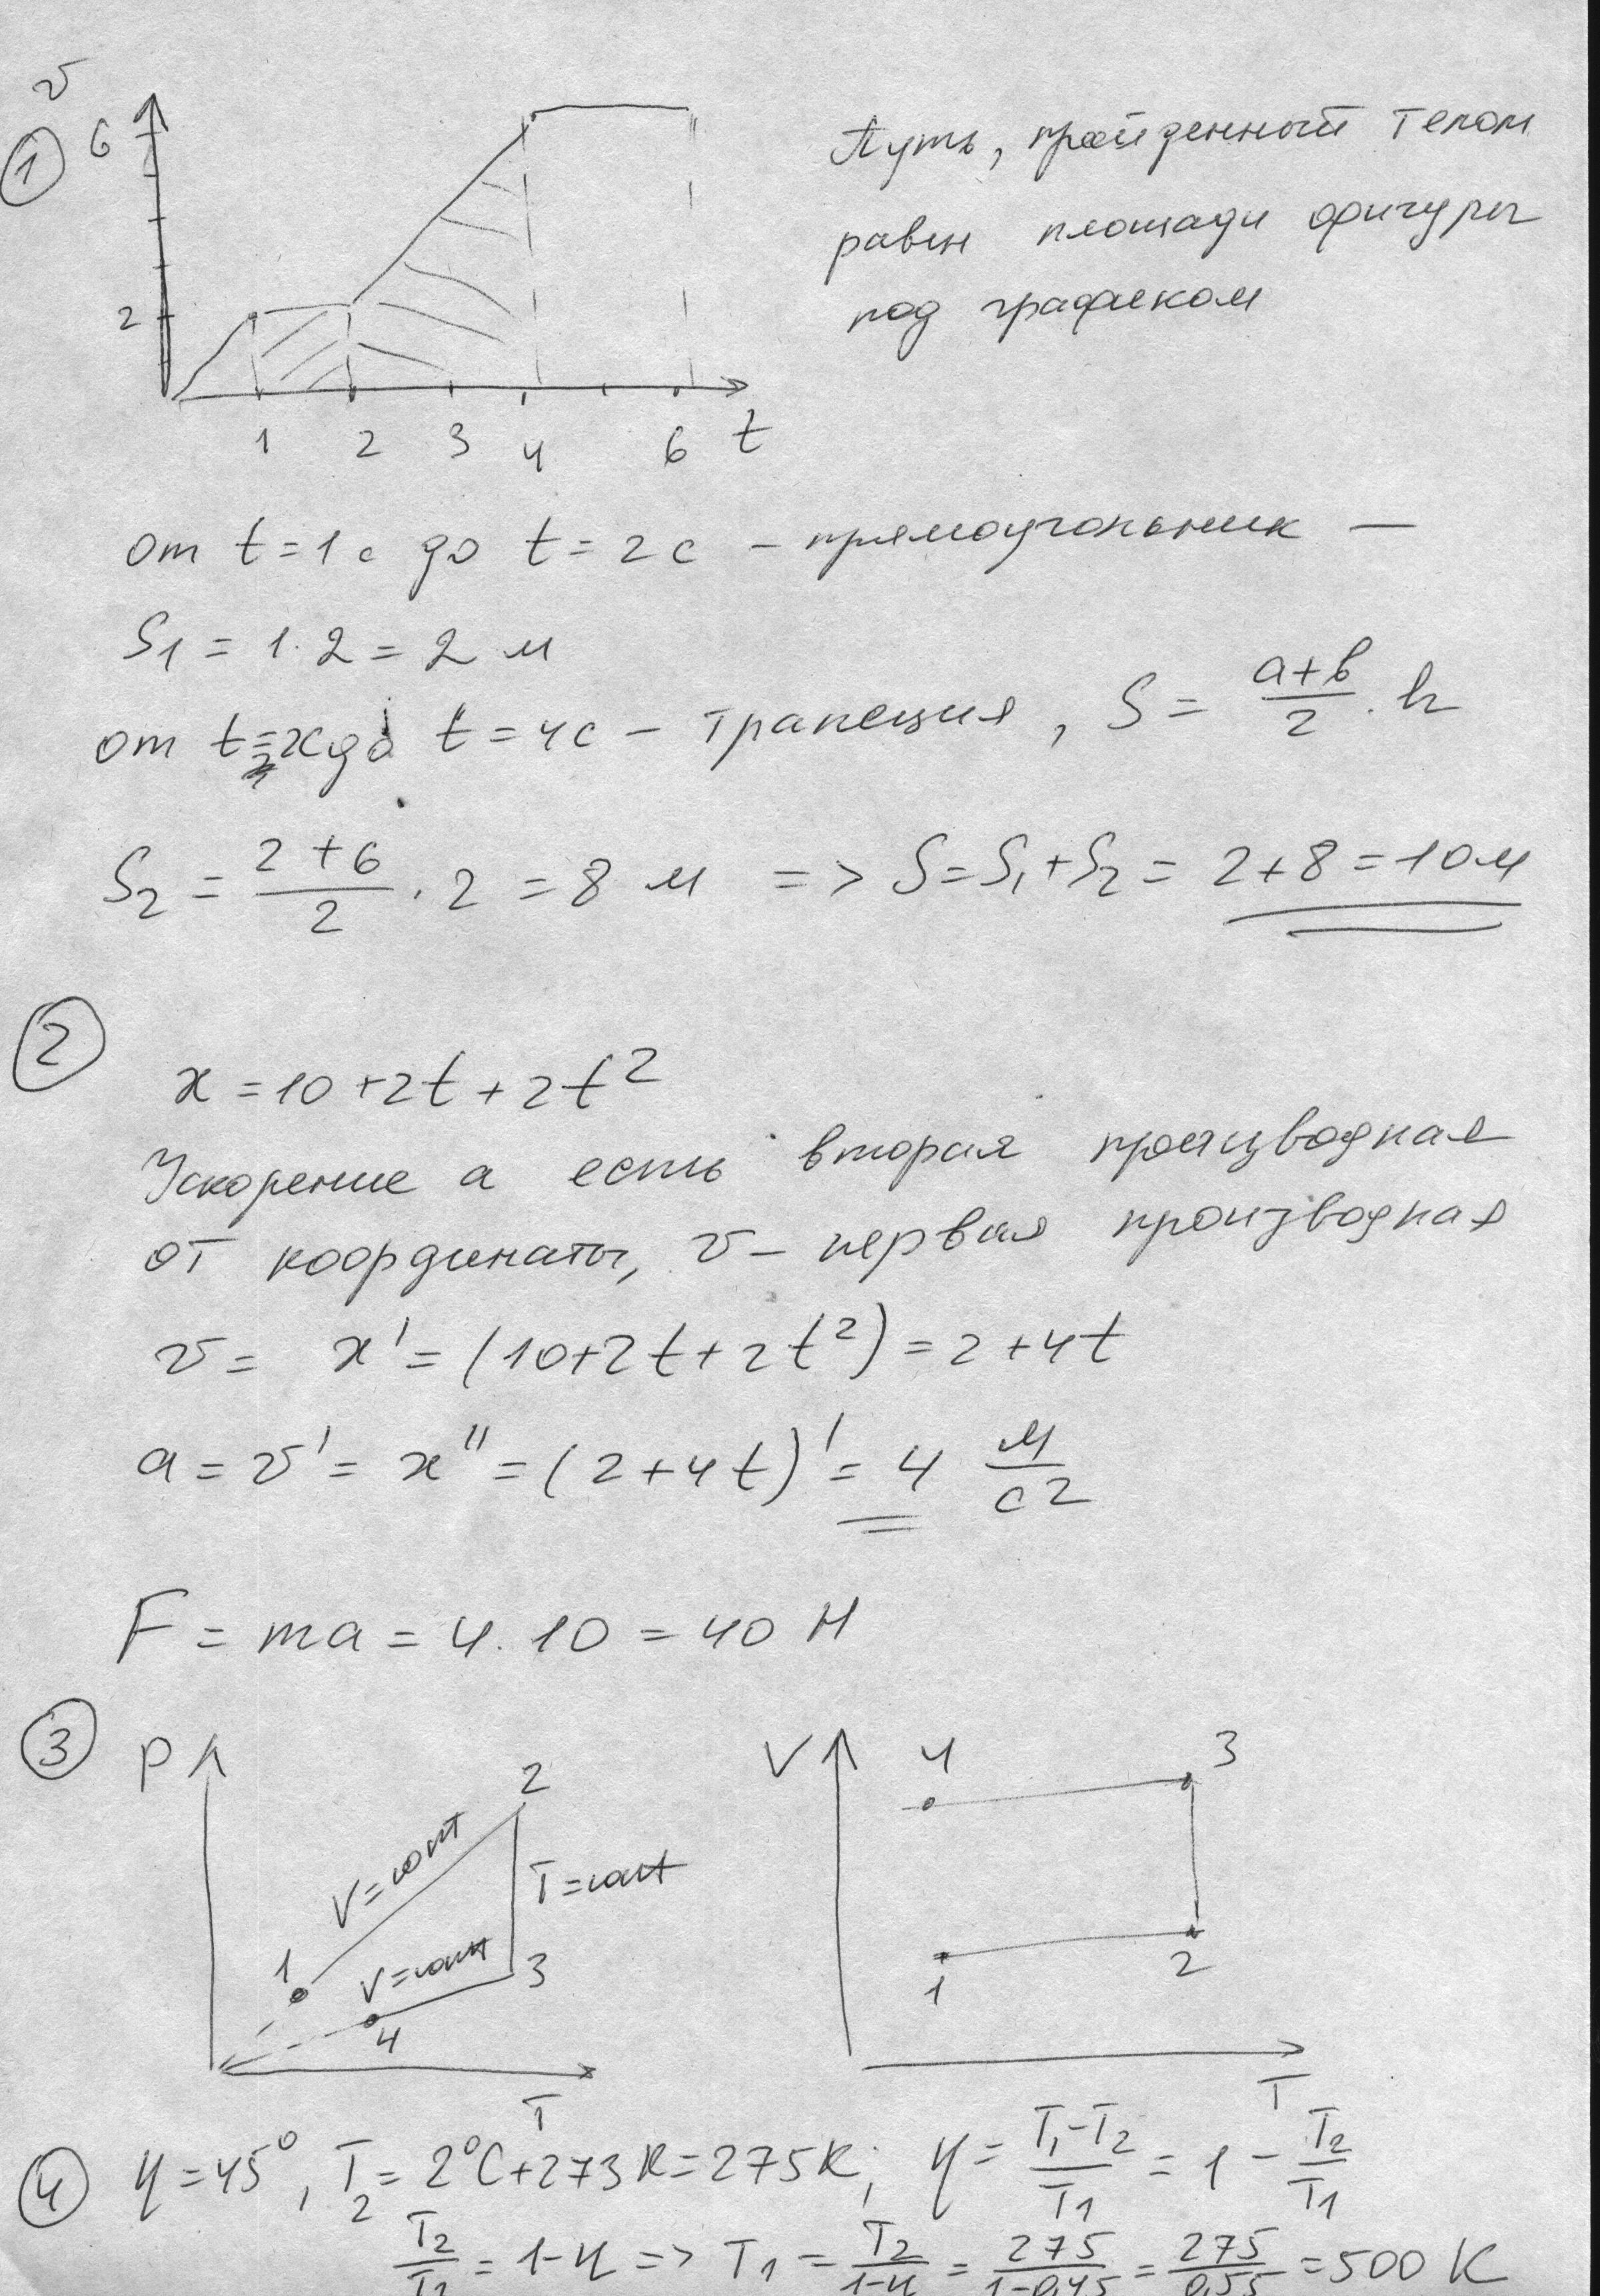 v
① 6
2
1 2 3 4 6 t
Путь, пройденный телом
равен площади фигуры
под графиком
от t = 1 с до t = 2 с – прямоугольник –
S₁ = 1 · 2 = 2 м
от t = 2 с до t = 4 с – трапеция, S = (a+b)/2 · h
S₂ = (2+6)/2 · 2 = 8 м => S = S₁ + S₂ = 2 + 8 = 10 м
② x = 10 + 2t + 2t²
Ускорение a есть вторая производная
от координаты, v – первая производная
v = x' = (10 + 2t + 2t²) = 2 + 4t
a = v' = x'' = (2 + 4t)' = 4 м/с²
F = ma = 4 · 10 = 40 Н
③ P
2
V = const
T = const
1
V = const
3
4
T
V
4 3
1 2
T
④ η = 45°, T₂ = 2°C + 273 K = 275 K; η = (T₁ – T₂)/T₁ = 1 – T₂/T₁
T₂/T₁ = 1 – η => T₁ = T₂/(1–η) = 275/(1–0,45) = 275/0,55 = 500 K